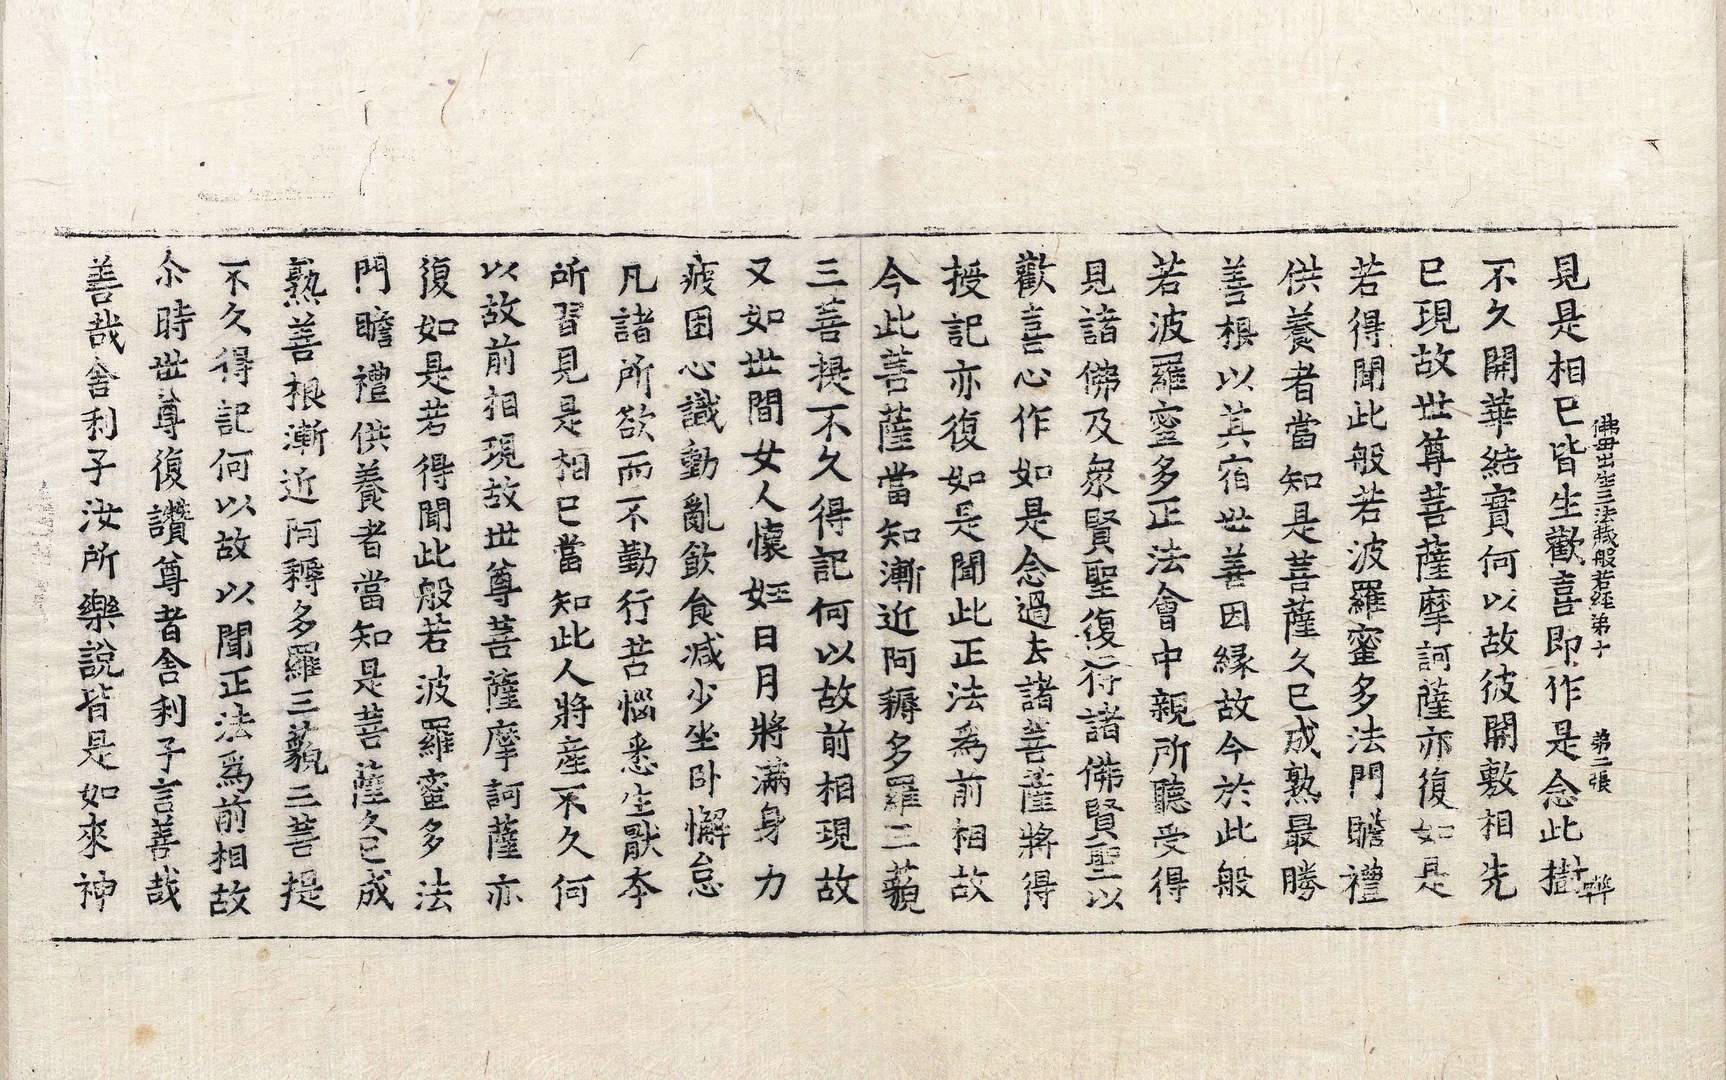 佛母出生三法藏般若經第十 第二張 㘽
見是相已皆生歡喜即作是念此樹
不久開華結實何以故彼開敷相先
已現故世尊菩薩摩訶薩亦復如是
若得聞此般若波羅蜜多法門瞻禮
供養者當知是菩薩久已成熟最勝
善根以其宿世善因緣故今於此般
若波羅蜜多正法會中親所聽受得
見諸佛及衆賢聖復得諸佛賢聖以
歡喜心作如是念過去諸菩薩將得
授記亦復如是聞此正法爲前相故
今此菩薩當知漸近阿耨多羅三藐
三菩提不久得記何以故前相現故
又如世間女人懷妊日月將滿身力
疲困心識動亂飲食減少坐卧懈怠
凡諸所欲而不勤行苦惱悉生猒夲
所習見是相已當知此人將産不久何
以故前相現故世尊菩薩摩訶薩亦
復如是若得聞此般若波羅蜜多法
門瞻禮供養者當知是菩薩久已成
熟善根漸近阿耨多羅三藐三菩提
不久得記何以故以聞正法爲前相故
尒時世尊復讚尊者舍利子言善哉
善哉舍利子汝所樂說皆是如來神